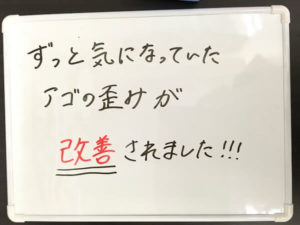 ずっと気になっていた
アゴの歪みが
改善されました!!!